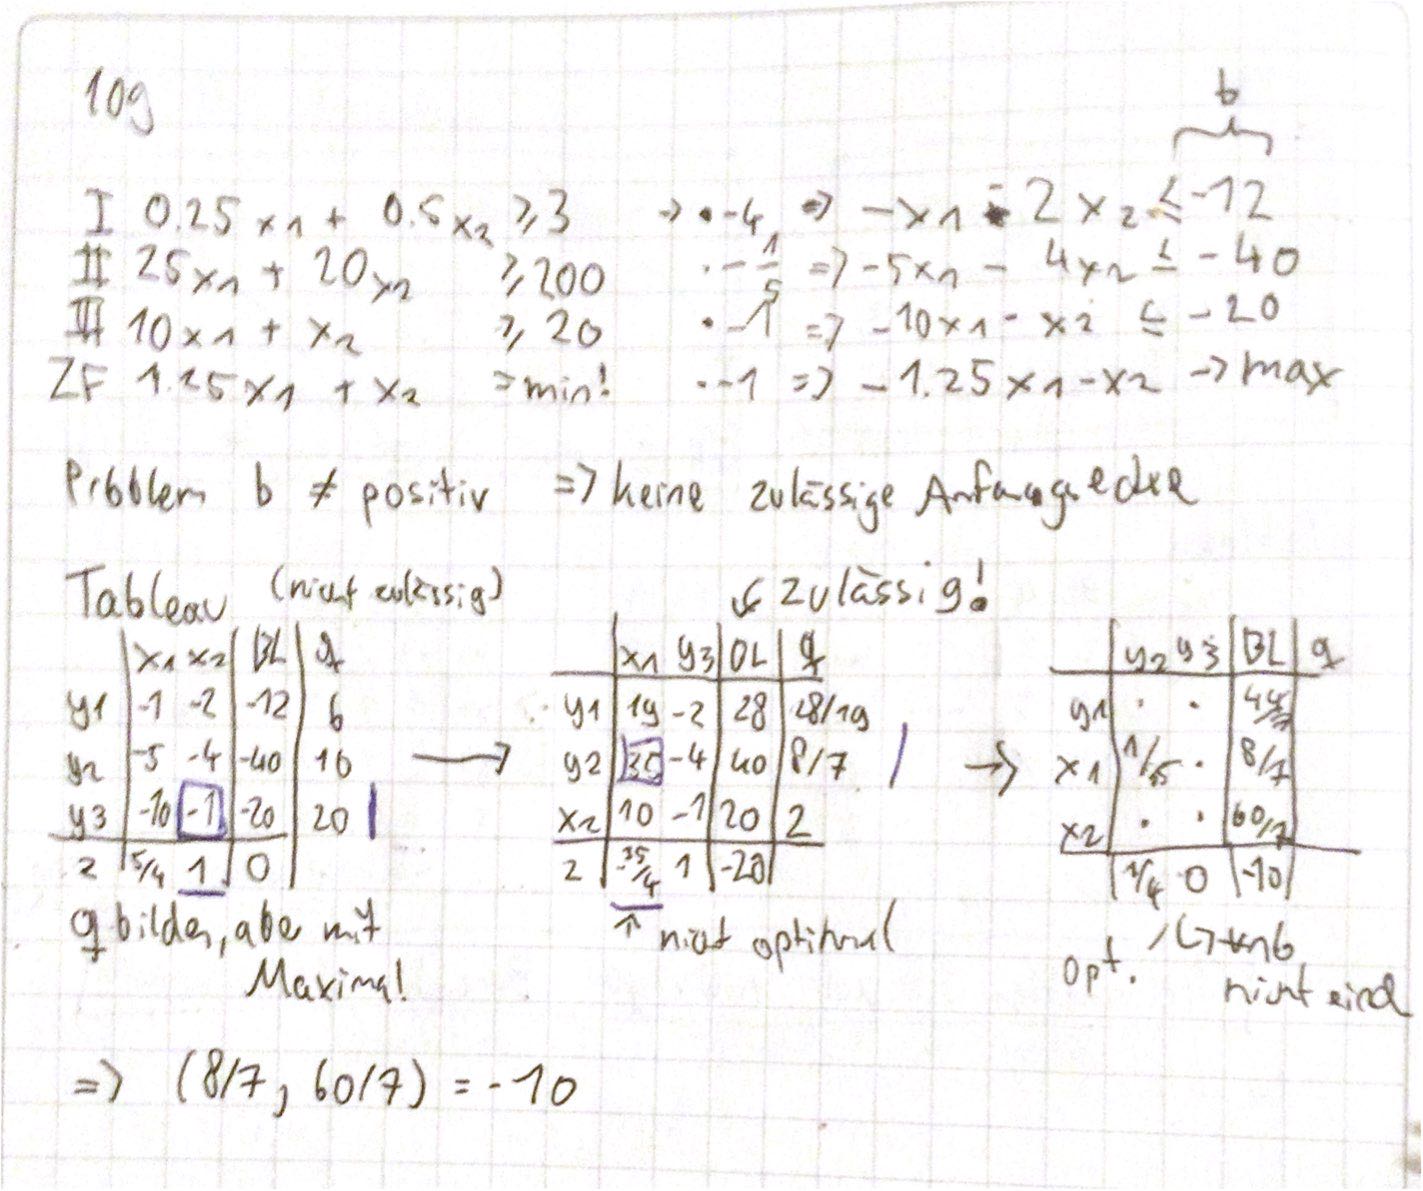 10g
b
I 0.25 x1 + 0.5 x2 ≥ 3 → · -4 => -x1 - 2 x2 ≤ -12
II 25x1 + 20x2 ≥ 200 · - 1/5 => -5x1 - 4x2 ≤ -40
III 10x1 + x2 ≥ 20 · -1 => -10x1 - x2 ≤ -20
ZF 1.25x1 + x2 = min! · -1 => -1.25x1 - x2 -> max
Problem b ≠ positiv => keine zulässige Anfangsecke
Tableau (nicht zulässig) ↙ zulässig!
x1 x2 BL q
y1 -1 -2 -12 6
y2 -5 -4 -40 10
y3 -10 -1 -20 20
z 5/4 1 0
q bilden, aber mit
Maxima!
→
x1 y3 BL q
y1 19 -2 28 28/19
y2 35 -4 40 8/7
x2 10 -1 20 2
z -35/4 1 -20
↑ nicht optimal
→
y2 y3 BL q
y1 · ·
x1 1/35 · 8/7
x2 · · 60/7
z 1/4 0 -10
opt.
nicht eind
=> (8/7, 60/7) = -10